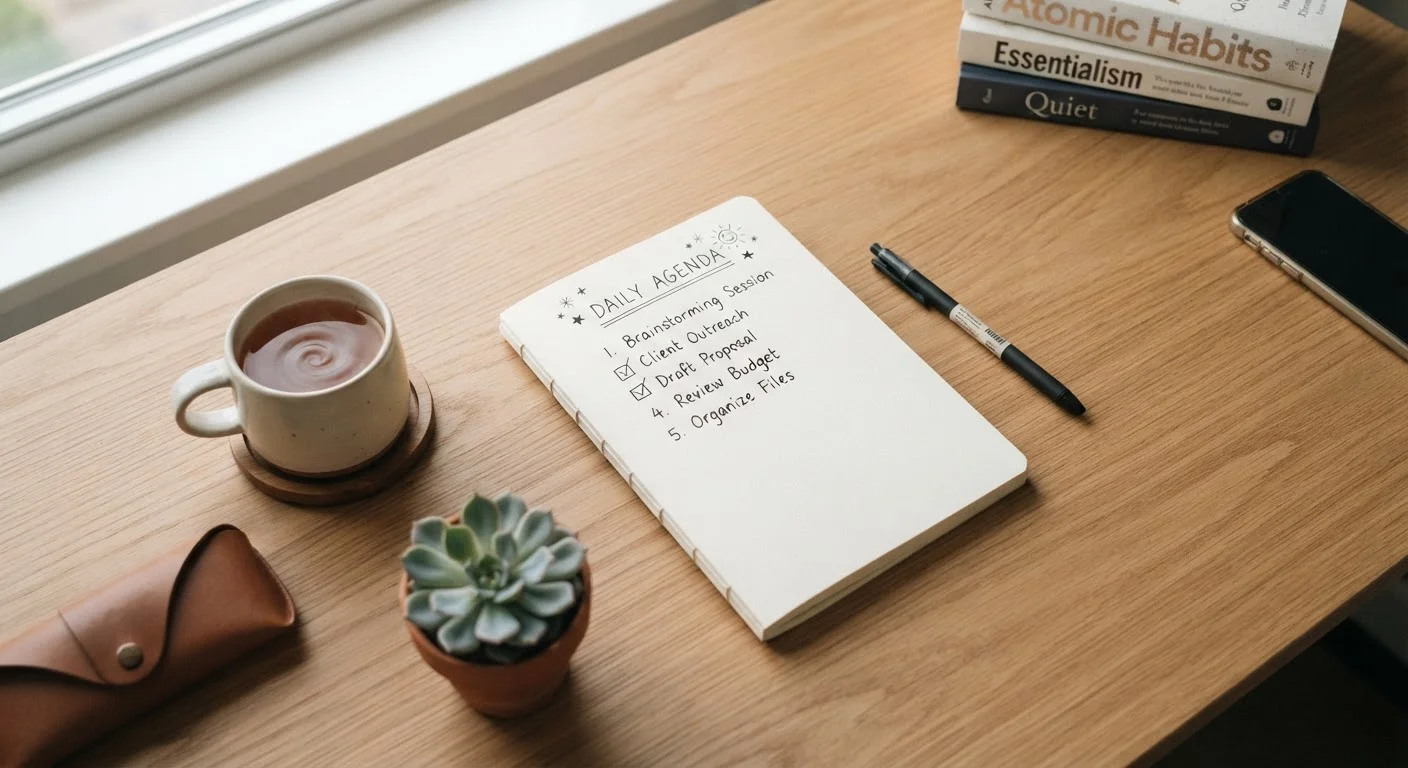 Atomic Habits
Essentialism
Quiet
DAILY AGENDA
1. Brainstorming Session
☑ Client Outreach
☑ Draft Proposal
4. Review Budget
5. Organize Files